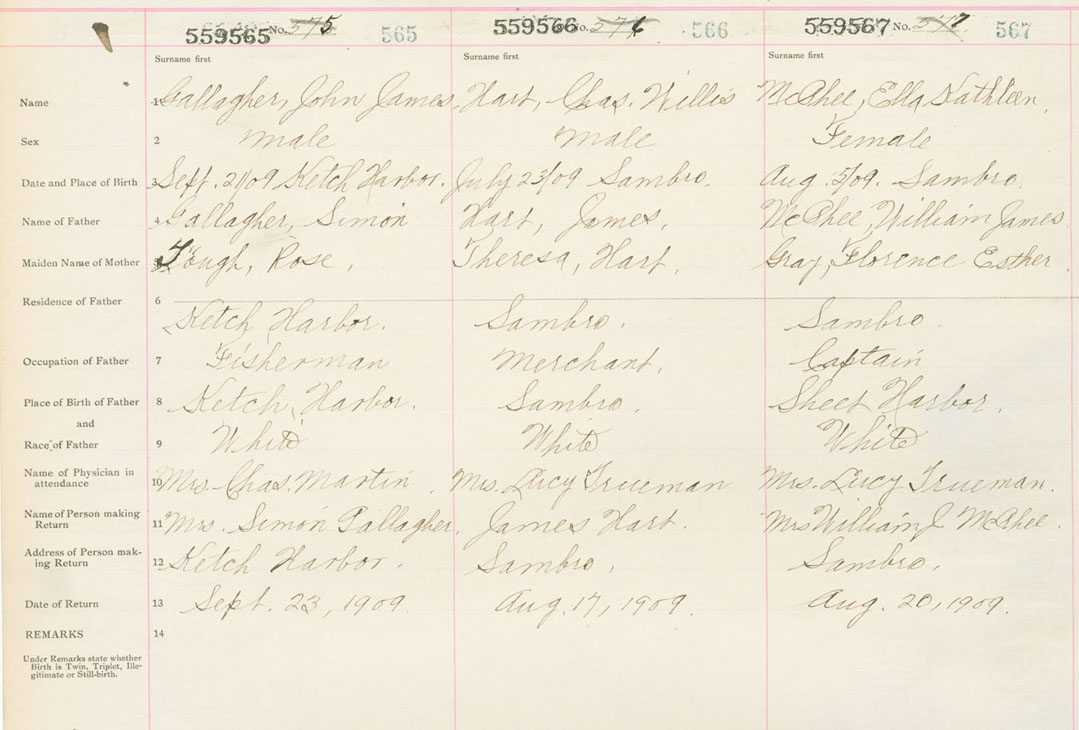 559565 No. 575 565 559566 No. 576 566 559567 No. 577 567
Surname first Surname first Surname first
Name 1 Gallagher, John James Hart, Chas. Willis McPhee, Ella Kathleen.
Sex 2 male male Female
Date and Place of Birth 3 Sept. 21/09 Ketch Harbor. July 23/09 Sambro. Aug. 5/09. Sambro.
Name of Father 4 Gallagher, Simon Hart, James. McPhee, William James
Maiden Name of Mother 5 Tough, Rose. Theresa, Hart. Gray, Florence Esther.
Residence of Father 6
Ketch Harbor. Sambro. Sambro.
Occupation of Father 7 Fisherman Merchant. Captain
Place of Birth of Father 8 Ketch Harbor. Sambro. Sheet Harbor.
and
Race of Father 9 White White White
Name of Physician in
attendance 10 Mrs. Chas. Martin. Mrs. Lucy Trueman Mrs. Lucy Trueman.
Name of Person making
Return 11 Mrs. Simon Gallagher. James Hart. Mrs William J McPhee.
Address of Person mak-
ing Return 12 Ketch Harbor. Sambro. Sambro.
Date of Return 13 Sept. 23, 1909. Aug. 17, 1909. Aug. 20, 1909.
REMARKS 14
Under Remarks state whether
Birth is Twin, Triplet, Ille-
gitimate or Still-birth.